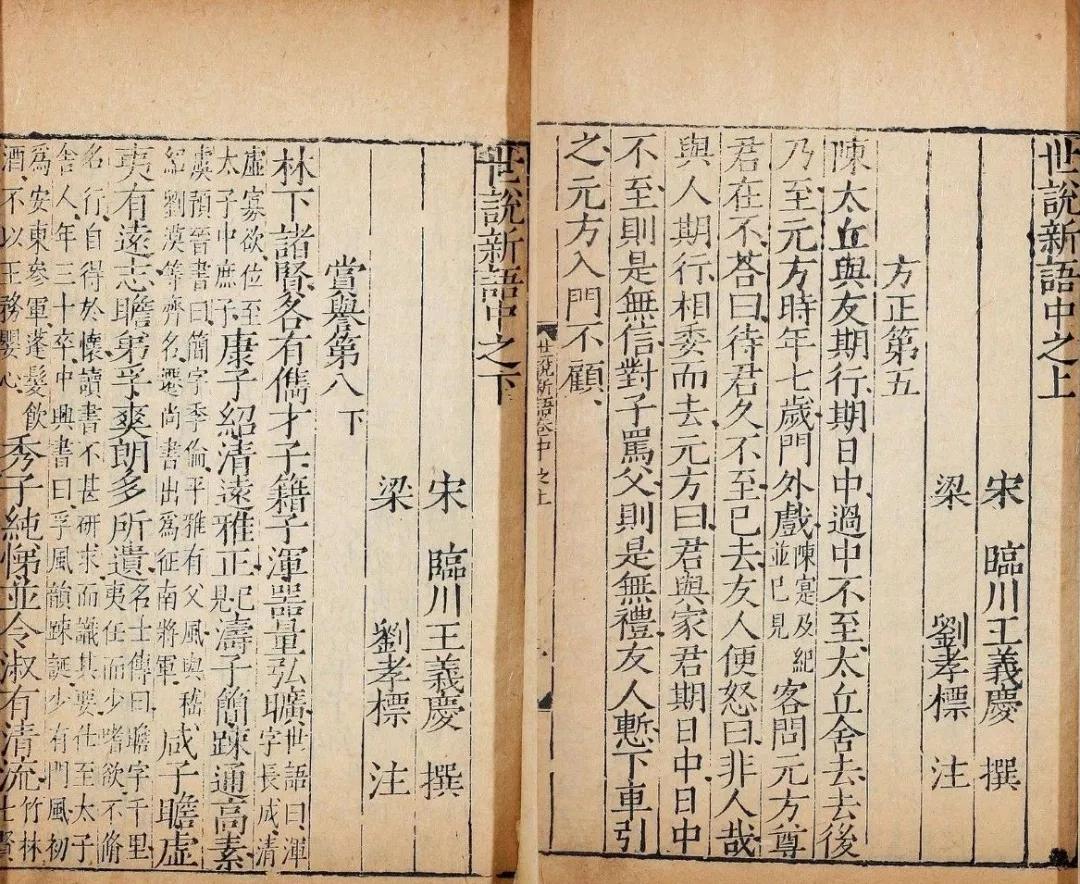 世說新語中之上
宋 臨川王義慶 撰
梁 劉孝標 注
方正第五
陳太丘與友期行期日中過中不至太丘舍去去後
乃至元方時年七歲門外戲陳寔及紀並已見客問元方尊
君在不荅曰待君久不至已去友人便怒曰非人哉
與人期行相委而去元方曰君與家君期日中日中
不至則是無信對子罵父則是無禮友人慙下車引
之元方入門不顧
世說新語卷中之上
世說新語中之下
宋 臨川王義慶 撰
梁 劉孝標 注
賞譽第八下
林下諸賢各有儁才子籍子渾器量弘曠世語曰渾字長成清
虛寡欲位至太子中庶子康子紹清遠雅正已見濤子簡踈通高素
虞預晉書曰簡字季倫平雅有父風與嵇紹劉漠等齊名遷尚書出為征南將軍咸子瞻虛
夷有遠志瞻弟孚爽朗多所遺名士傳曰瞻字千里夷任而少嗜欲不脩
名行自得於懷讀書不甚研求而識其要仕至太子舍人年三十卒中興書曰孚風韻踈誕少有門風初
為安東參軍蓬髮飲酒不以王務嬰心秀子純悌並令淑有清流竹林七賢